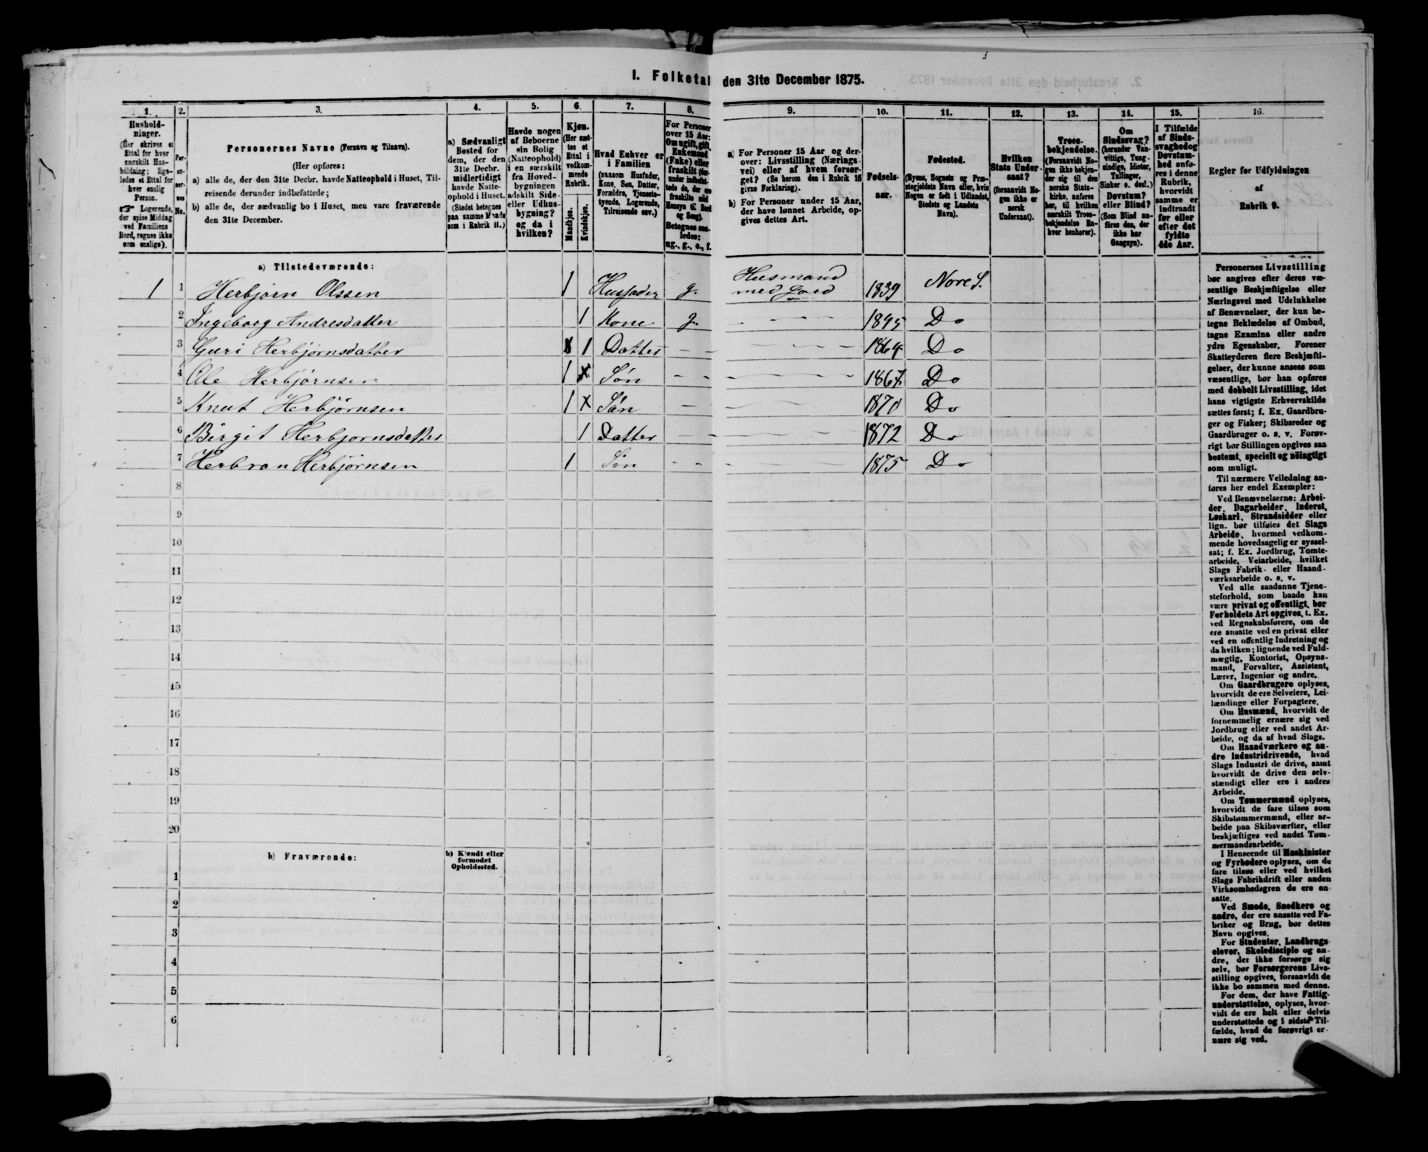 I. Folketal den 31te December 1875.
1. 2. 3. 4. 5. 6. 7. 8. 9. 10. 11. 12. 13. 14. 15. 16.
Hushold-
ninger.
(Her skrives et
Ettal for hver
særskilt Hus-
holdning; lige-
ledes et Ettal
for hver enslig
Person.
Logerende,
der spise Middag
ved Familiens
Bord, regnes ikke
som enslige).
Per-
so-
ner-
nes
No.
Personernes Navne (Fornavn og Tilnavn).
(Her opføres:
a) alle de, der den 31te Decbr. havde Natteophold i Huset, Til-
reisende derunder indbefattede;
b) alle de, der sædvanlig bo i Huset, men vare fraværende
den 31te December.
a) Sædvanligt
Bosted for
dem, der den
31te Decbr.
midlertidigt
havde Natte-
ophold i Huset.
(Stedet betegnes
paa samme Maade
som i Rubrik 11.)
Havde nogen
af Beboerne
sin Bolig
(Natteophold)
i en særskilt
fra Hoved-
bygningen
adskilt Side-
eller Udhus-
bygning?
og da i
hvilken?
Kjøn.
(Her sæt-
tes et
Ettal i
vedkom-
mende
Rubrik.)
Mandkjøn.
Kvindekjøn.
Hvad Enhver er
i Familien
(saasom Husfader,
Kone, Søn, Datter,
Forældre, Tjeneste-
tyende, Logerende,
Tilreisende osv.)
For Personer
over 15 Aar:
Om ugift, gift,
Enkemand
(Enke) eller
fraskilt
Betegnes saa-
ledes:
ug., g., e., f.
a) For Personer 15 Aar og der-
over: Livsstilling (Nærings-
vei) eller af hvem forsør-
get? (Se herom den i Rubrik 16
givne Forklaring).
b) For Personer under 15 Aar,
der have lønnet Arbeide, op-
gives dettes Art.
Fødsels-
aar.
Fødested.
(Byens, Sognets og Præ-
stegjeldets Navn eller, hvis
Nogen er født i Udlandet,
Stedets og Landets
Navn).
Hvilken
Stats Under-
saat?
(forsaavidt No-
gen ikke er
norsk
Undersaat).
Troes-
bekjendelse.
(Forsaavidt No-
gen ikke bekjen-
der sig til den
norske Stats-
kirke, anføres
her, til hvilken
særskilt Troes-
bekjendelse En-
hver henhører).
Om
Sindssvag?
(herunder Van-
vittige, Tung-
sindige, Idioter,
Tullinger,
Sinker o. desl.)
Døvstum?
eller Blind?
(Som Blind an-
føres den, der
ikke har
Gangsyn).
I Tilfælde
af Sinds-
svaghed og
Døvstum-
hed anfø-
res i denne
Rubrik,
hvorvidt
samme er
indtraadt
før eller
efter det
fyldte
4de Aar.
Regler for Udfyldningen
af
Rubrik 9.
a) Tilstedeværende:
1 1 Herbjørn Olssen 1 Husfader g. Husmand med Jord 1839 Nore S.
2 Ingeborg Andresdatter 1 Kone g. 1845 Do
3 Guri Herbjørnsdatter 1 Datter 1864 Do
4 Ole Herbjørnsen 1 Søn 1867 Do
5 Knut Herbjørnsen 1 Søn 1870 Do
6 Birgit Herbjørnsdatter 1 Datter 1872 Do
7 Herbran Herbjørnsen 1 Søn 1875 Do
8
9
10
11
12
13
14
15
16
17
18
19
20
b) Fraværende:
b) Kjendt eller
formodet
Opholdssted.
1
2
3
4
5
6
Personernes Livsstilling
bør angives efter deres væ-
sentlige Beskjæftigelse eller
Næringsvei med Udelukkelse
af Benævnelser, der kun be-
tegne Beklædelse af Ombud,
tagne Examina eller andre
ydre Egenskaber. Forener
Skatteyderen flere Beskjæfti-
gelser, der kunne ansees som
væsentlige, bør han opføres
med dobbelt Livsstilling, idet
hans vigtigste Erhvervskilde
sættes først; f. Ex. Gaardbru-
ger og Fisker; Skibsreder og
Gaardbruger o. s. v. Forøv-
rigt bør Stillingen opgives saa
bestemt, specielt og nøiagtigt
som muligt.
Til nærmere Veiledning an-
føres her endel Exempler:
Ved Benævnelserne: Arbei-
der, Dagarbeider, Inderst,
Løskarl, Strandsidder eller
lign. bør tilføies det Slags
Arbeide, hvormed vedkom-
mende hovedsagelig er syssel-
sat; f. Ex. Jordbrug, Tomte-
arbeide, Veiarbeide, hvilket
Slags Fabrik- eller Haand-
værksarbeide o. s. v.
Ved alle saadanne Tjene-
steforhold, som baade kan
være privat og offentligt, bør
Forholdets Art opgives, t. Ex.
ved Regnskabsførere, om de
ere ansatte ved en privat eller
ved en offentlig Indretning og
da hvilken; lignende ved Fuld-
mægtig, Kontorist, Opsyns-
mand, Forvalter, Assistent,
Lærer, Ingeniør og andre.
Om Gaardbrugere oplyses,
hvorvidt de ere Selveiere, Lei-
lændinge eller Forpagtere.
Om Husmænd, hvorvidt de
fornemmelig ernære sig ved
Jordbrug eller ved andet Ar-
beide, og da af hvad Slags.
Om Haandværkere og an-
dre Industridrivende, hvad
Slags Industri de drive, samt
hvorvidt de drive den selv-
stændigt eller ere i andres
Arbeide.
Om Tømmermænd oplyses,
hvorvidt de fare tilsøs som
Skibstømmermænd, eller ar-
beide paa Skibsværfter, eller
beskjæftiges ved andet Tøm-
mermandsarbeide.
I Henseende til Maskinister
og Fyrbødere oplyses, om de
fare tilsøs eller ved hvilket
Slags Fabrikdrift eller anden
Virksomhed de ere an-
satte.
Ved Smede, Snedkere og
andre, der ere ansatte ved Fa-
briker og Brug, bør dettes
Navn opgives.
For Studenter, Landbrugs-
elever, Skoledisciple og an-
dre, der ikke forsørge sig
selv, bør Forsørgerens Livs-
stilling opgives, forsaavidt de
ikke bo sammen med denne.
For dem, der have Fattig-
understøttelse, oplyses, hvor-
vidt de ere helt eller delvis
understøttede og i sidste Til-
fælde, hvad de forøvrigt er-
nære sig ved.